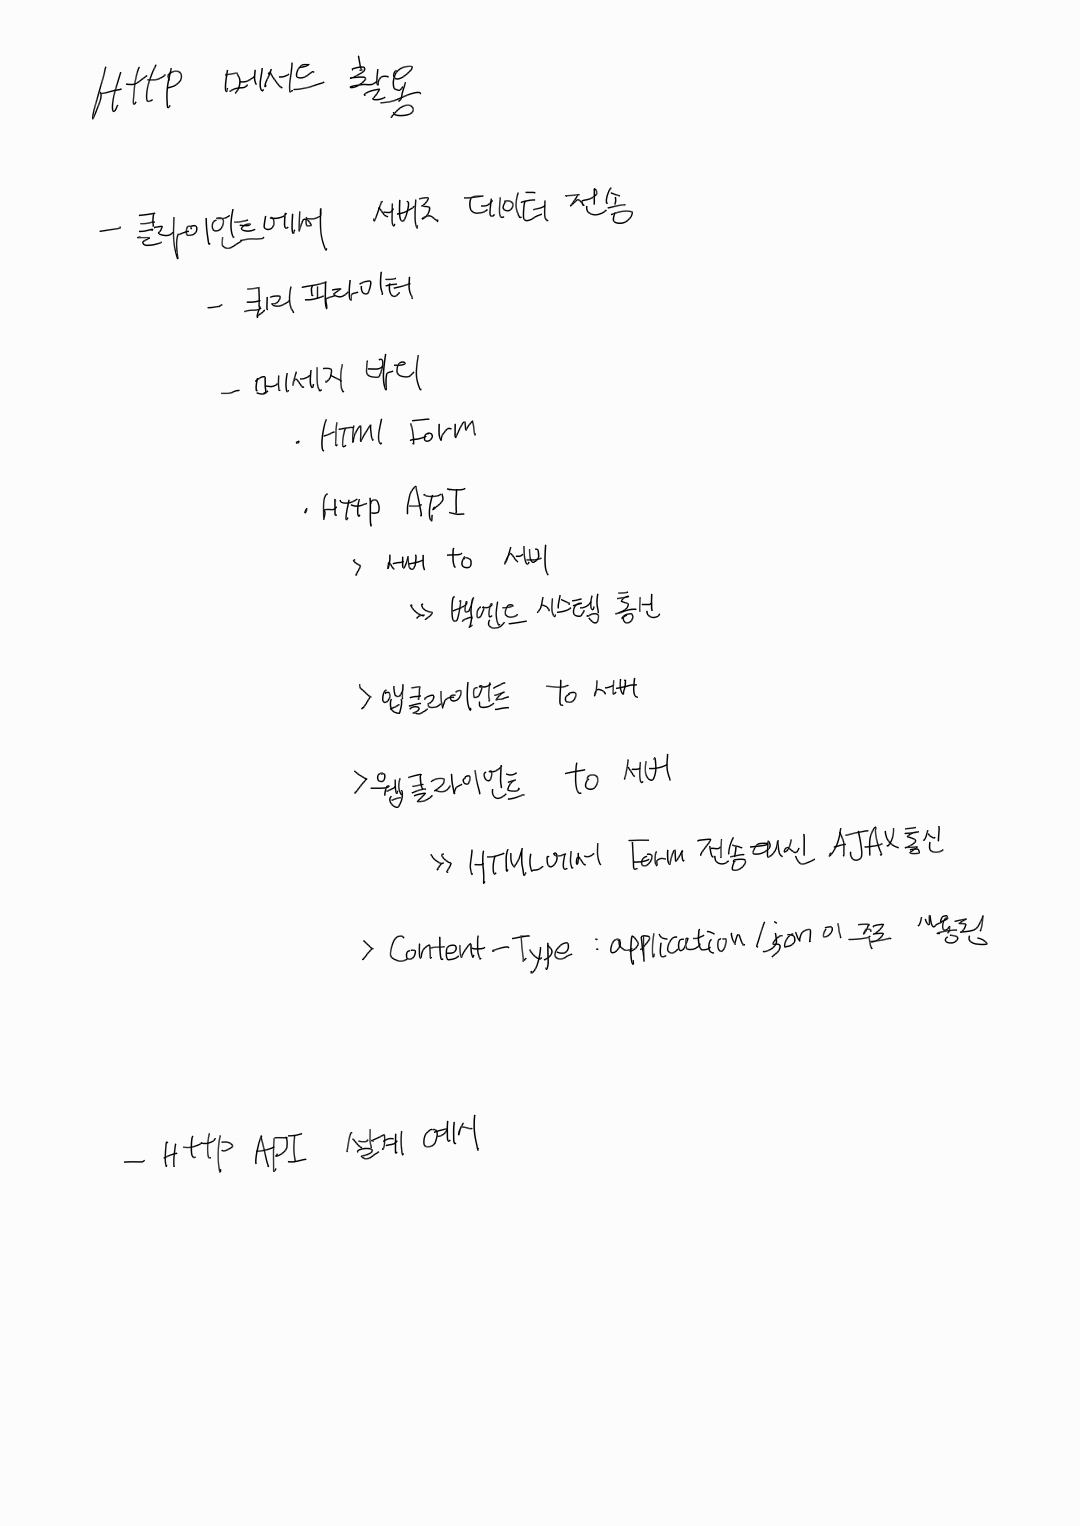 Http 메서드 활용
- 클라이언트에서 서버로 데이터 전송
- 쿼리 파라미터
- 메세지 바디
· HTml Form
· HTtp API
> 서버 to 서버
>> 백엔드 시스템 통신
> 앱클라이언트 to 서버
> 웹클라이언트 to 서버
>> HTML에서 Form 전송 대신 AJAX 통신
> Content-Type : application/json 이 주로 사용됨
- Http API 설계 예시